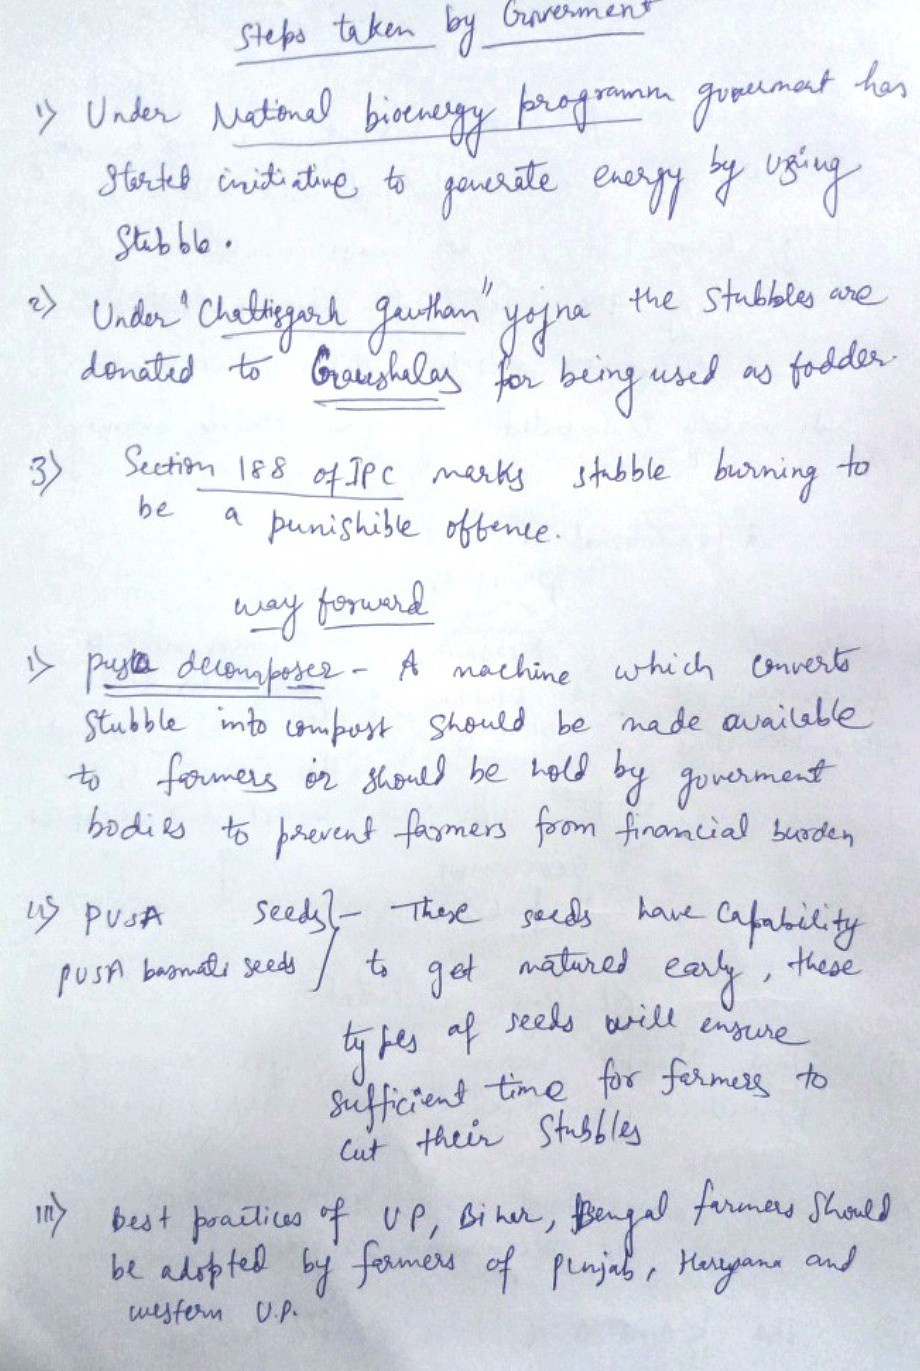 Steps taken by Goverment
1) Under National bioenergy programm government has
Started initiative to generate energy by using
Stubble.
2) Under "Chattisgarh Gauthan" yojna the stubbles are
donated to Graushalas for being used as fodder.
3) Section 188 of IPC marks stubble burning to
be a punishible offence.
way forward
i) pusa decomposer - A machine which converts
Stubble into compost should be made available
to farmers or should be hold by goverment
bodies to prevent farmers from financial burden
ii) PUSA seeds } - These seeds have Capability
PUSA basmati seeds to get matured early, these
types of seeds will ensure
sufficient time for farmers to
cut their Stubbles
iii) Best practices of UP, Bihar, Bengal farmers Should
be adopted by farmers of punjab, Haryana and
western U.P.